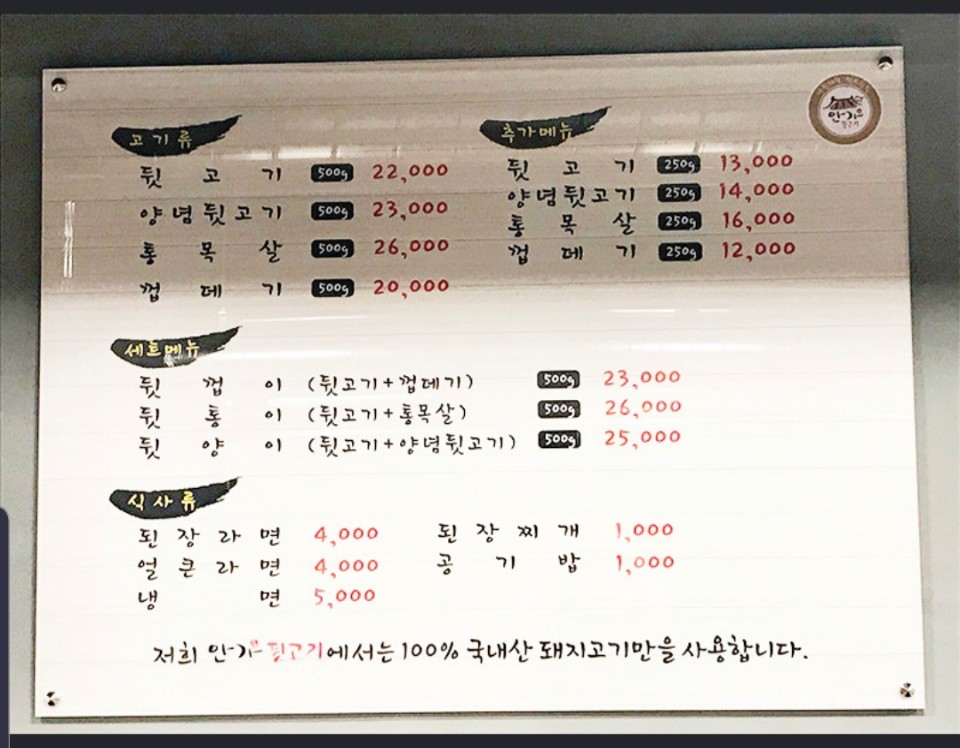 고기류
뒷고기 500g 22,000
양념뒷고기 500g 23,000
통목살 500g 26,000
껍데기 500g 20,000
추가메뉴
뒷고기 250g 13,000
양념뒷고기 250g 14,000
통목살 250g 16,000
껍데기 250g 12,000
세트메뉴
뒷껍이 (뒷고기+껍데기) 500g 23,000
뒷통이 (뒷고기+통목살) 500g 26,000
뒷양이 (뒷고기+양념뒷고기) 500g 25,000
식사류
된장라면 4,000
얼큰라면 4,000
냉면 5,000
된장찌개 1,000
공기밥 1,000
저희 안가 뒷고기에서는 100% 국내산 돼지고기만을 사용합니다.